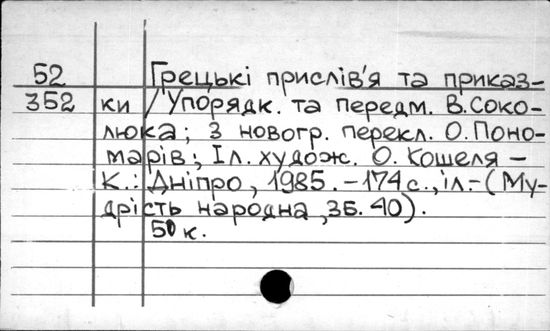 52 Грецькі прислів'я та приказ-
352 ки / Упорядк. та передм. В. Соко-
люка; З новогр. перекл. О. Поно-
марів; Іл. худож. О. Кошеля –
К.: Дніпро, 1985. – 174 с., іл. – (Му-
дрість народна, зб. 40).
50 к.